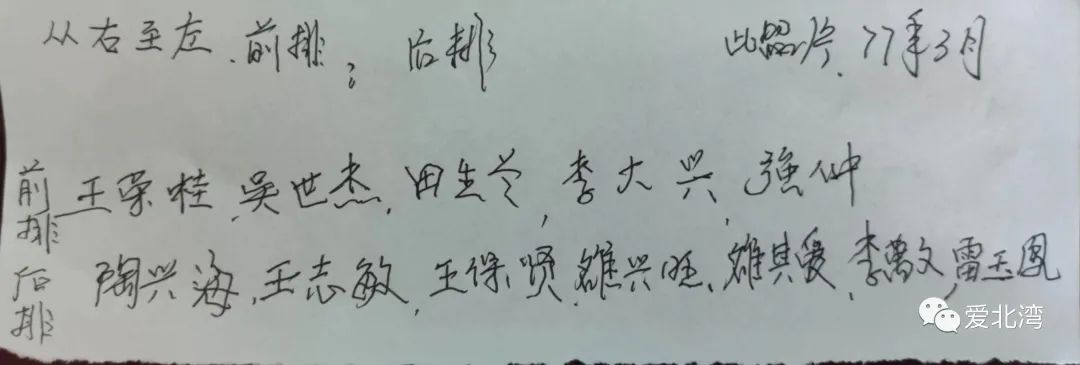 从右至左、前排；后排 此照片、77年3月
前排 王荣桂、吴世杰、田生兰、李大兴、强仲
后排 陶兴海、王志敏、王保贤、雒兴旺、雒其爱、李万文、雷玉凤
爱北湾